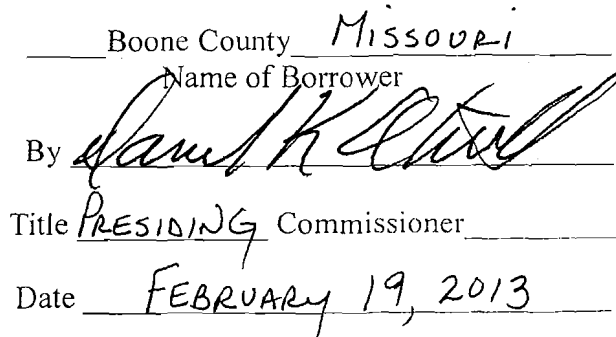 Boone County MISSOURI
Name of Borrower
By Daniel K Atwill
Title PRESIDING Commissioner
Date FEBRUARY 19, 2013